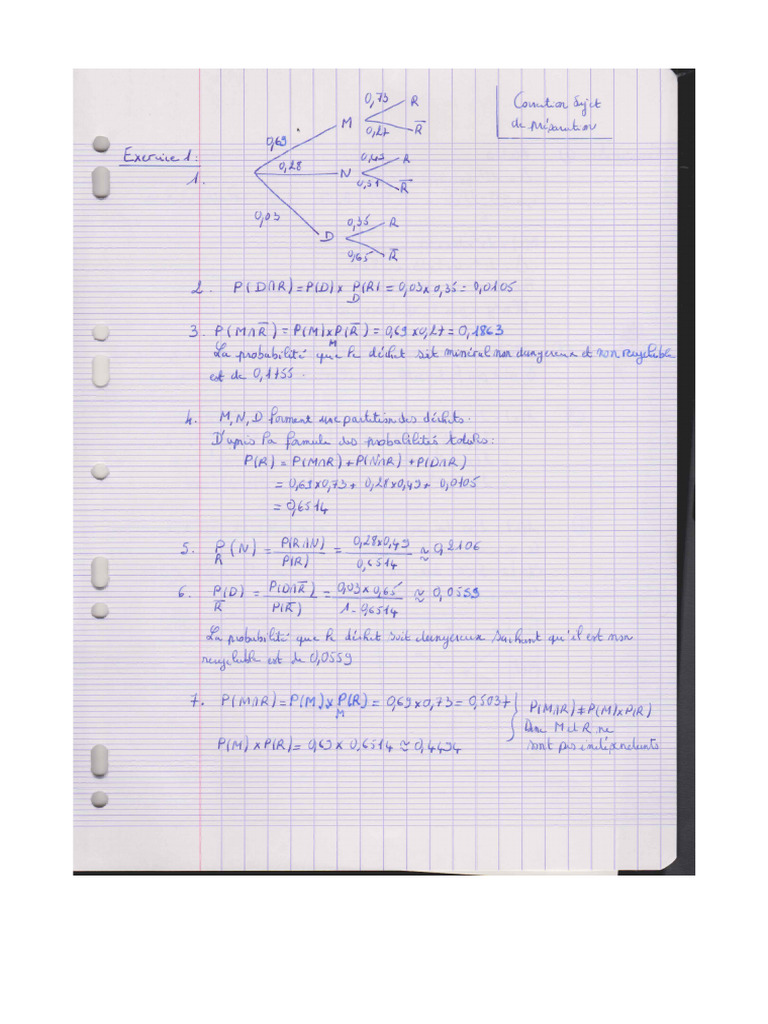 Correction Sujet
de préparation
Exercice 1:
1.
0,69 M 0,73 R
0,27 R̅
0,28 N 0,49 R
0,51 R̅
0,03 D 0,35 R
0,65 R̅
2. P(D∩R) = P(D) × P_D(R) = 0,03 × 0,35 = 0,0105
3. P(M∩R̅) = P(M) × P_M(R̅) = 0,69 × 0,27 = 0,1863
La probabilité que le déchet soit minéral non dangereux et non recyclable
est de 0,1755.
4. M, N, D forment une partition des déchets.
D'après la formule des probabilités totales:
P(R) = P(M∩R) + P(N∩R) + P(D∩R)
= 0,69×0,73 + 0,28×0,49 + 0,0105
= 0,6514
5. P_R(N) = P(R∩N)/P(R) = 0,28×0,49/0,6514 ≈ 0,2106
6. P_R̅(D) = P(D∩R̅)/P(R̅) = 0,03×0,65/1-0,6514 ≈ 0,0559
La probabilité que le déchet soit dangereux sachant qu'il est non
recyclable est de 0,0559
7. P(M∩R) = P(M) × P_M(R) = 0,69 × 0,73 = 0,5037
P(M) × P(R) = 0,69 × 0,6514 ≈ 0,4494
P(M∩R) ≠ P(M) × P(R)
Donc M et R ne
sont pas indépendants